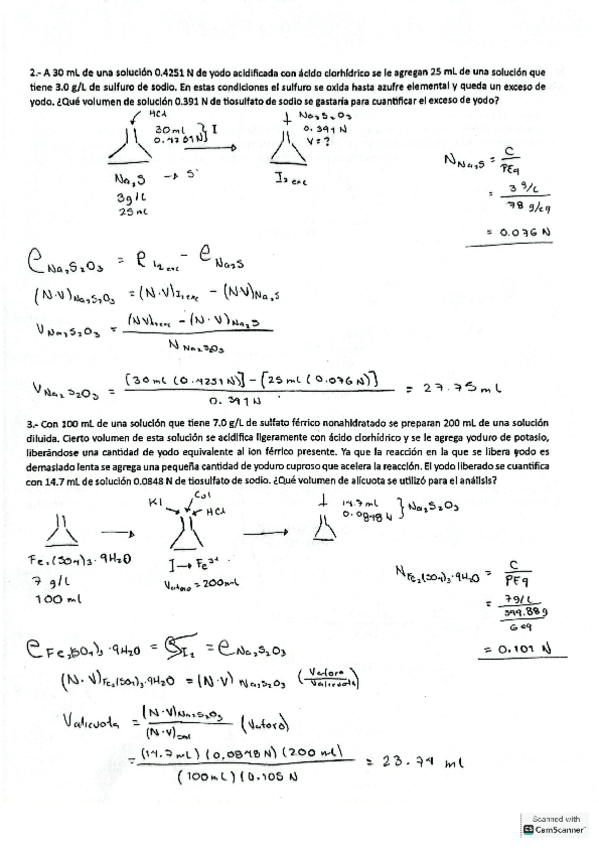 2.- A 30 mL de una solución 0.4251 N de yodo acidificada con ácido clorhídrico se le agregan 25 mL de una solución que
tiene 3.0 g/L de sulfuro de sodio. En estas condiciones el sulfuro se oxida hasta azufre elemental y queda un exceso de
yodo. ¿Qué volumen de solución 0.391 N de tiosulfato de sodio se gastaría para cuantificar el exceso de yodo?
HCl
30 ml } I
↓ Na2S2O3
0.391N
V=?
Na2S → S°
3g/L
25 mL
I2 exc
N Na2S = C / PEq
= 3 g/L / 78 g/eq
= 0.076 N
e Na2S2O3 = e I2 exc - e Na2S
(N·V)Na2S2O3 = (N·V)I2exc - (N·V)Na2S
V Na2S2O3 = (N·V)I2exc - (N·V)Na2S / N Na2S2O3
V Na2S2O3 = [30 mL (0.4251N)] - [25 mL (0.076N)] / 0.391N = 27.75 mL
3.- Con 100 mL de una solución que tiene 7.0 g/L de sulfato férrico nonahidratado se preparan 200 mL de una solución
diluida. Cierto volumen de esta solución se acidifica ligeramente con ácido clorhídrico y se le agrega yoduro de potasio,
liberándose una cantidad de yodo equivalente al ion férrico presente. Ya que la reacción en la que se libera yodo es
demasiado lenta se agrega una pequeña cantidad de yoduro cuproso que acelera la reacción. El yodo liberado se cuantifica
con 14.7 mL de solución 0.0848 N de tiosulfato de sodio. ¿Qué volumen de alícuota se utilizó para el análisis?
KI CuI HCl
↓ 14.7 mL
0.0848 N } Na2S2O3
Fe2(SO4)3·9H2O
7 g/L
100 ml
I → Fe3+
Vaforo = 200ml
N Fe2(SO4)3·9H2O = C / PEq
= 7g/L / 599.88g / 6 eq
= 0.101 N
e Fe2(SO4)3·9H2O = e I2 = e Na2S2O3
(N·V)Fe2(SO4)3·9H2O = (N·V) Na2S2O3 (Vaforo / Valicuota)
Valicuota = (N·V)Na2S2O3 / (N·V)sal (Vaforo)
= (14.7 mL) (0.0848N) (200 ml) / (100 mL) (0.105 N = 23.74 ml
Scanned with
CS CamScanner